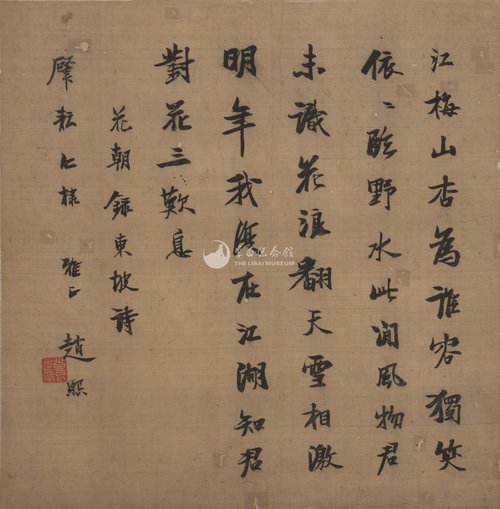 江梅山杏為誰容獨笑
依〻臨野水此間風物君
未識花浪翻天雪相激
明年我復在江湖知君
對花三歎息
花朝錄東坡詩
仁棣 雅正
趙熙
李白纪念館
THE LIBAI MUSEUM